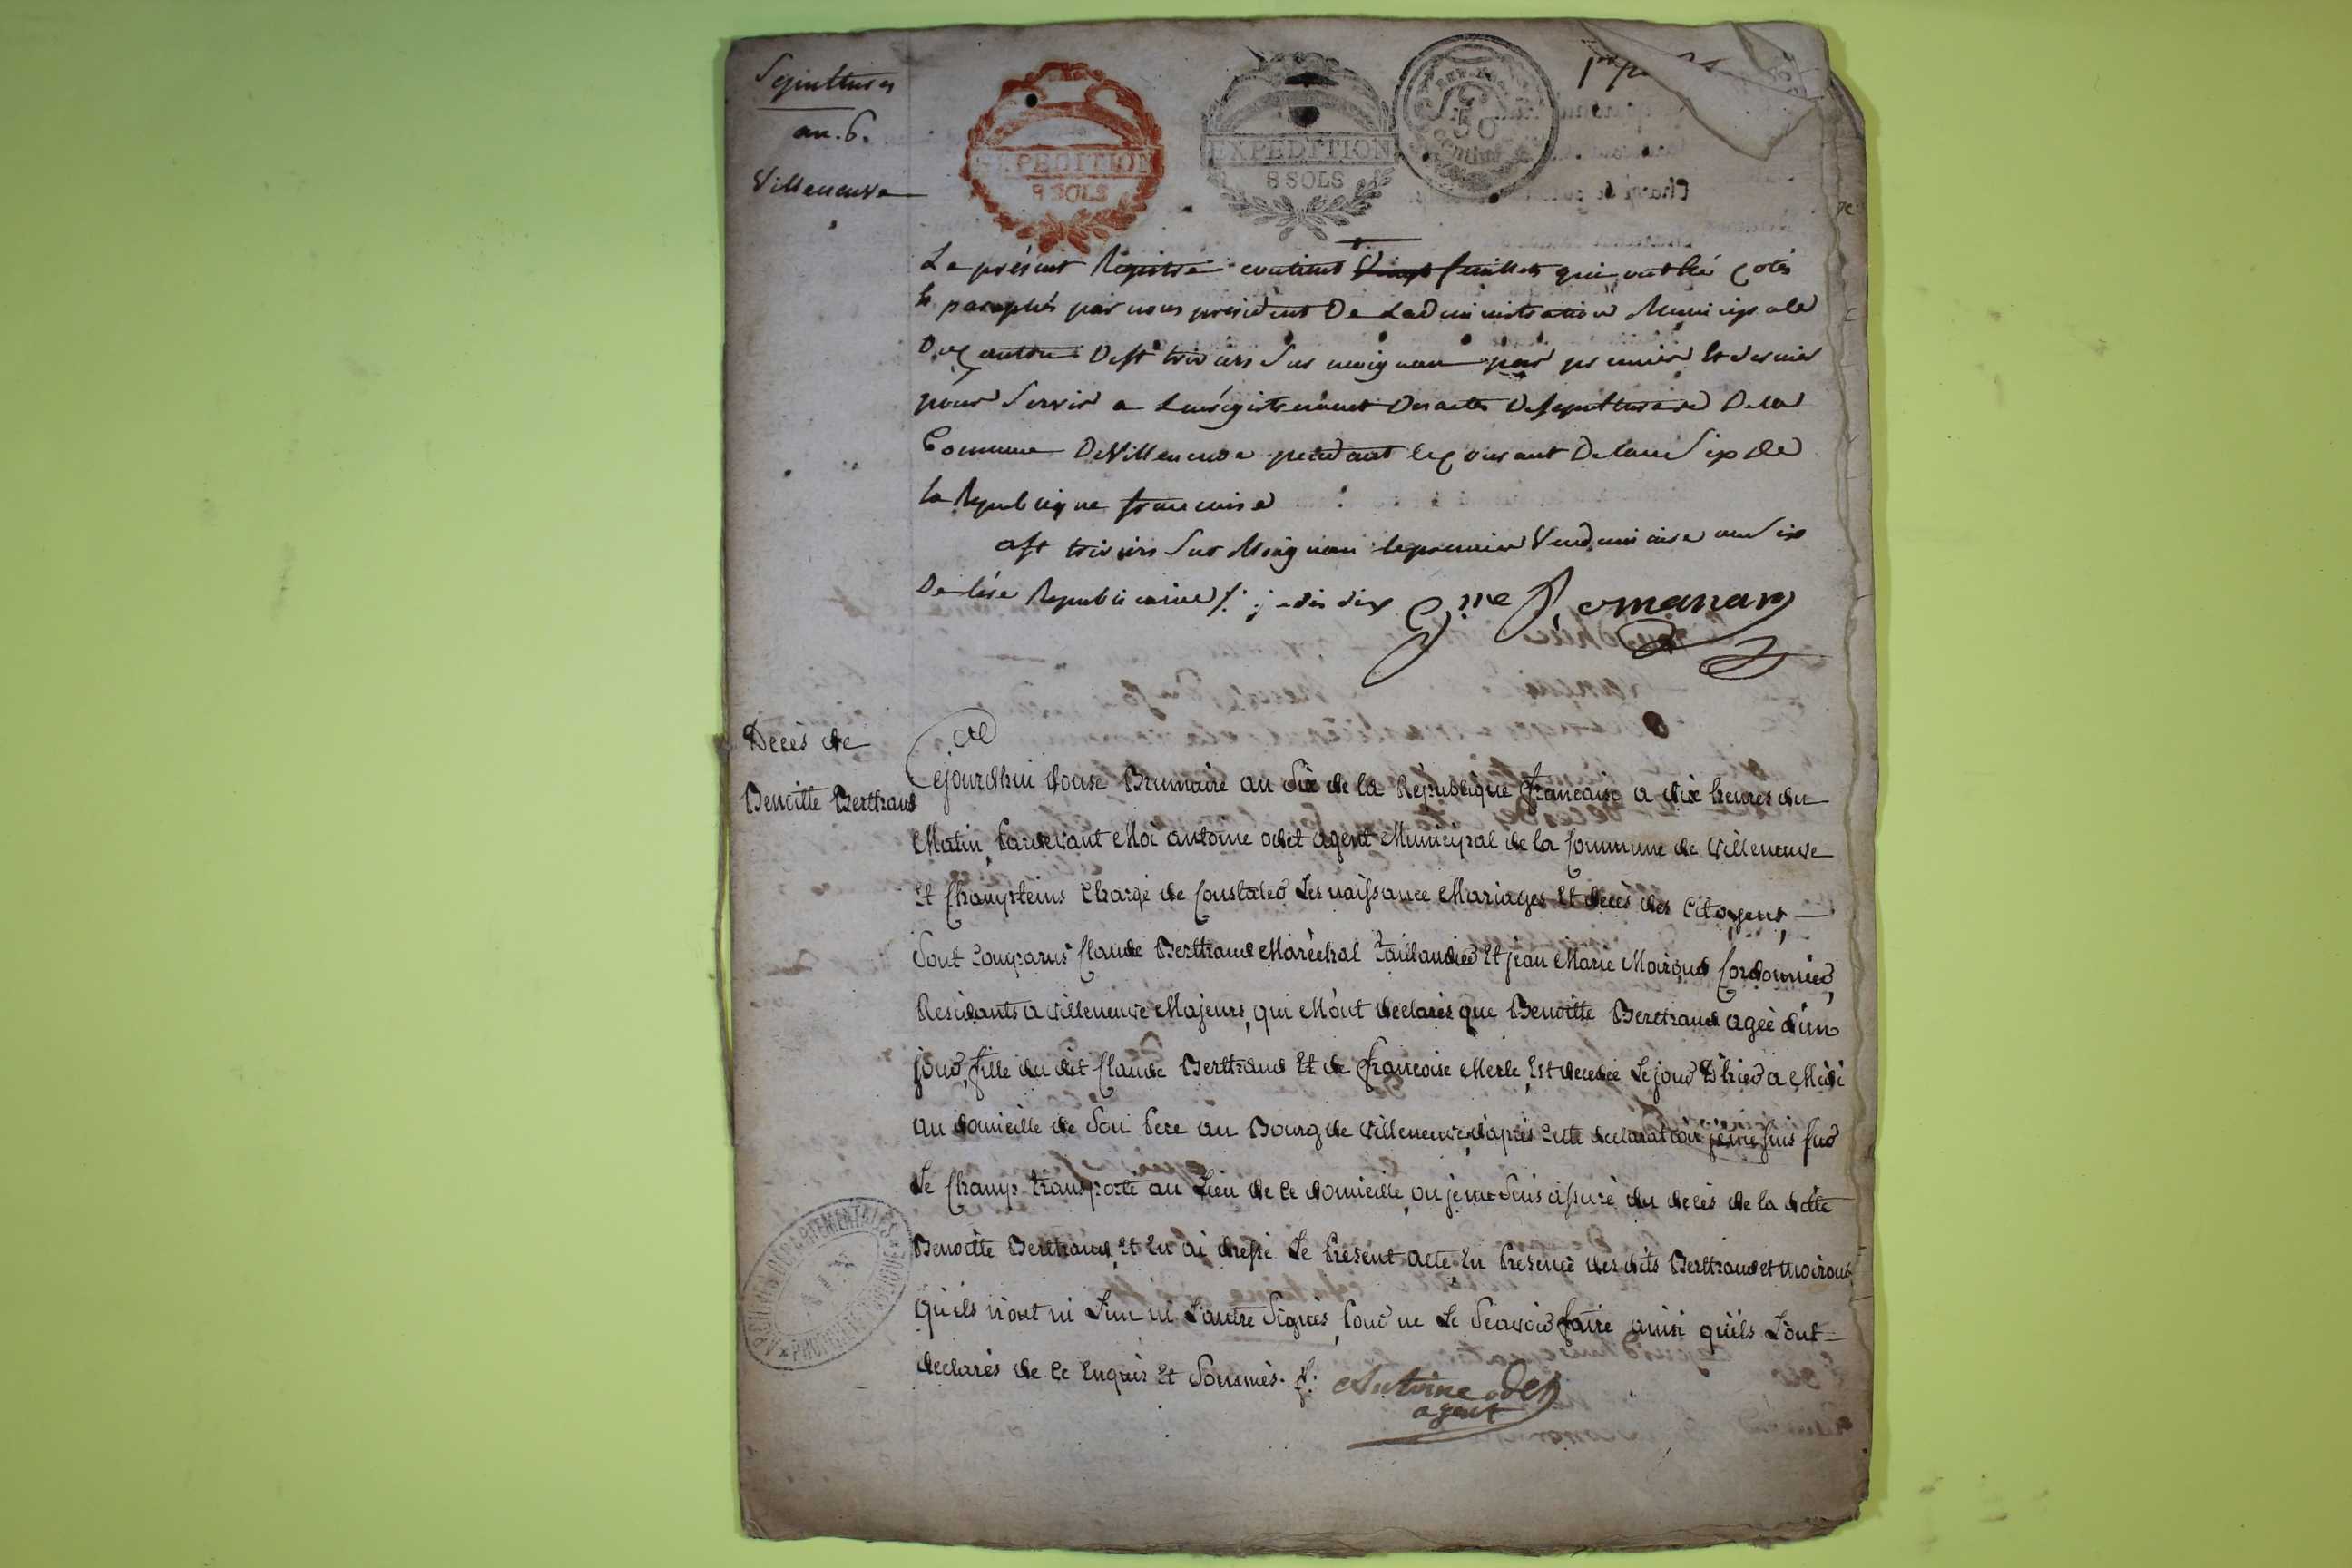 Sepultures
an. 6.
Villeneuve
EXPEDITION
8 SOLS
EXPEDITION
8 SOLS
REP.
50
centimes
Le présent Registre contient vingt feuillets qui ont été cotés
et paraphés par nous président De Ladministration Municipale
Du canton Dest triviers Sur moignan par premier et dernier
pour Servir a Lenrégistrement Des actes De sepultures De la
Commune De Villeneuve pendant le courant De lan Six de
la Republique francaise
a st triviers Sur Moignan le premier Vendemiaire an Six
De lère Republicaine
Décès de
Benoitte Bertrand
Cejourdhui douse Brumaire an Six de la Republique francaise a dix heures du
Matin, Pardevant Moi antoine odet agent Municipal de la Commune de Villeneuve
Et Champteins Chargé de Constater Les naissance Mariages Et décès des Citoyens,
Sont Comparus Claude Bertrand Maréchal Taillandier Et jean Marie Moiroud Cordonnier,
Residants a villeneuve Majeurs, qui M'ont declarés que Benoitte Bertrand agée d'un
jour, fille du dit Claude Bertrand Et de francoise Merle, Est decedée Le jour D'hier a Midi
au domicille de Son Pere au Bourg de villeneuve, d'après Cette declaration je me suis sur
Le Champ transporté au Lieu de Ce domicille, ou je me Suis assuré du decès de la ditte
Benoitte Bertrand, Et En ai dressé Le Present acte, En Presence des dits Bertrand et moiroud
qu'ils n'ont ni Lun ni L'autre Signés, Pour ne Le Scavoir faire ainsi qu'ils L'ont
declarés de Ce Enquis Et Sommés.
Antoine odet
agent
ARCHIVES DÉPARTEMENTALES
AIN
PROPRIÉTÉ PUBLIQUE